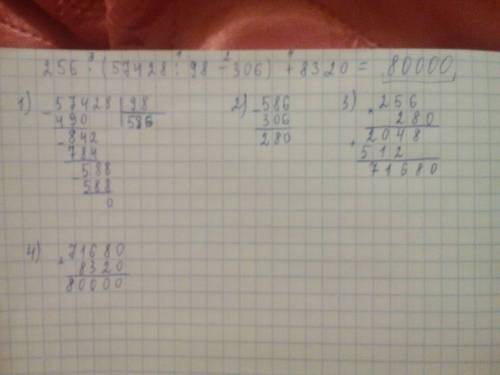 256 · (57428 : 98 - 306) + 8320 = 80000
3 1 2 4
1) - 57428 | 98
490 | 586
- 842
784
- 588
588
0
2) - 586
306
280
3) × 256
280
+ 2048
512
71680
4) + 71680
8320
80000